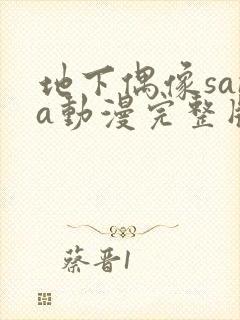 地下偶像sa
a動漫完整
蔡晋1